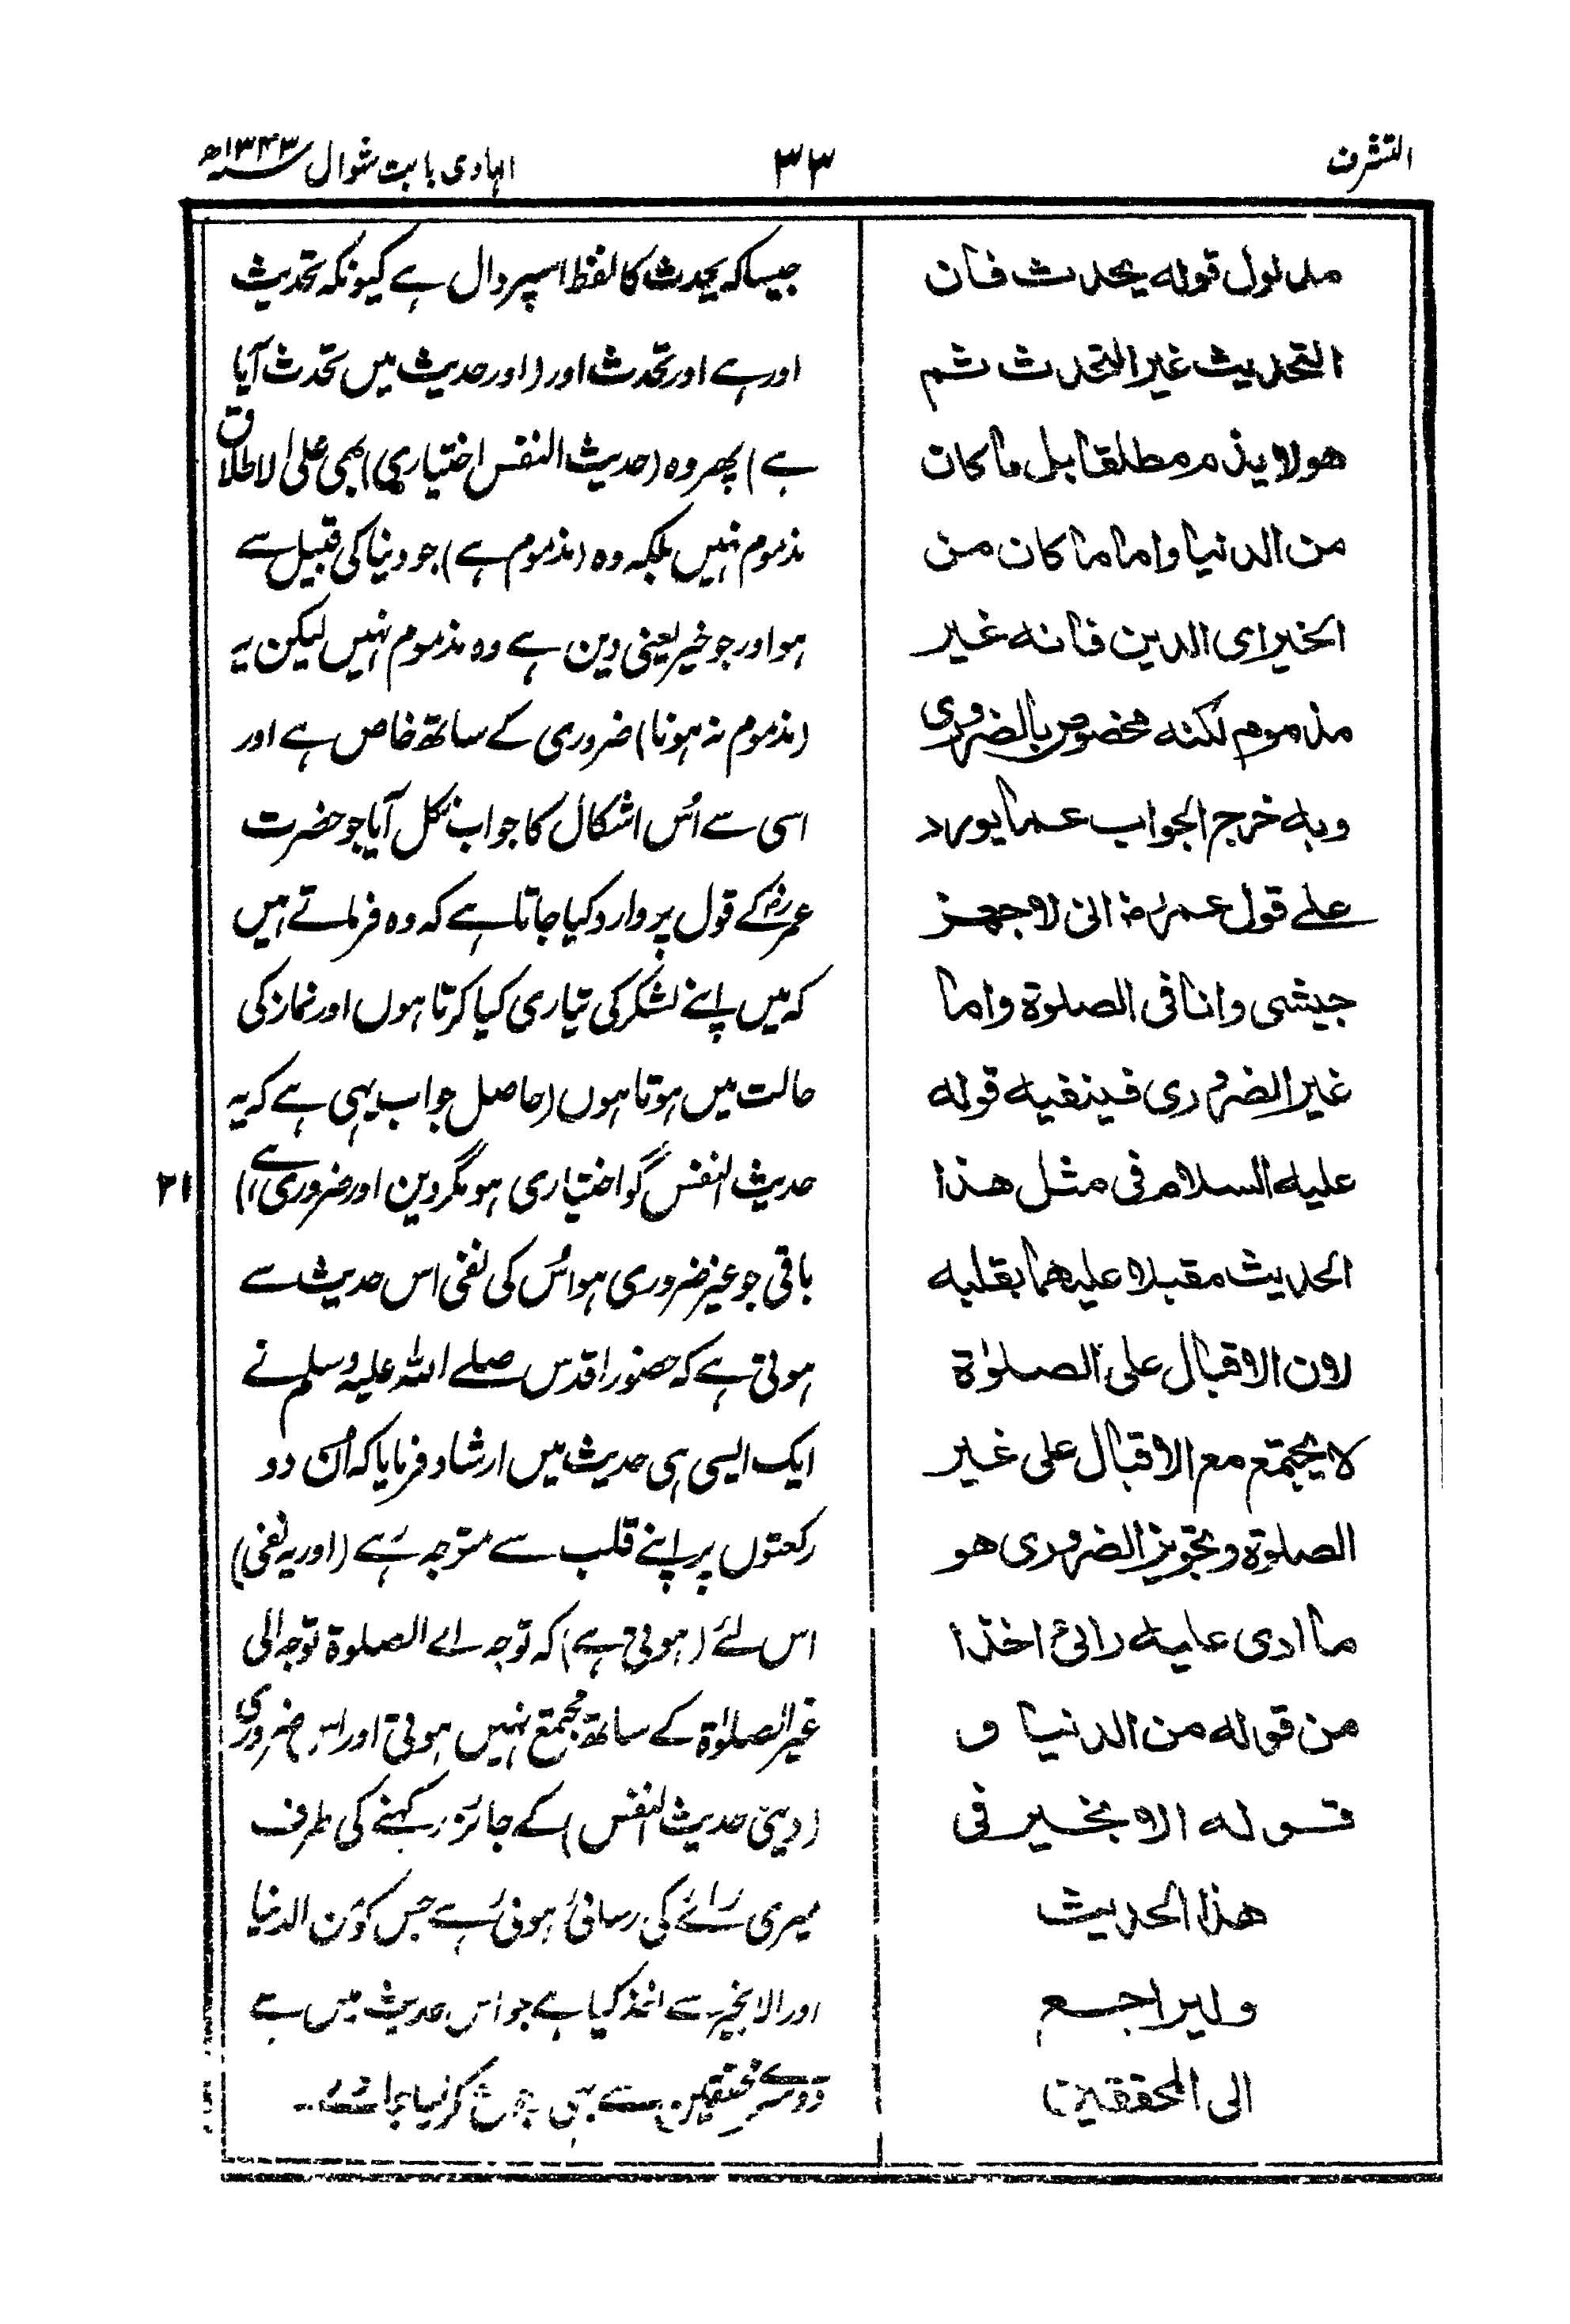 التشرف
٣٣
الہادی بابت شوال ١٣٤٣ھ
مدلول قوله يحدث فان
التحديث غير التحدث ثم
هو لا يذم مطلقا بل ما كان
من الدنيا واما ما كان من
الخير اى الدين فانه غير
مذموم لكنه مخصوص بالضرورى
وبه خرج الجواب عما يورد
على قول عمر رض انى لاجهز
جيشى وانا فى الصلوة واما
غير الضرورى فينفيه قوله
عليه السلام فى مثل هذا
الحديث مقبلا عليهما بقلبه
لان الاقبال على الصلوٰة
لا يجتمع مع الاقبال على غير
الصلوة وتجويز الضرورى هو
ما ادى عليه رائى اخذا
من قوله من الدنيا و
قوله الا بخير فى
هذا الحديث
وليراجع
الى المحققين
جیساکہ یحدث کا لفظ اسپر دال ہے کیونکہ تحدیث
اور ہے اور تحدث اور (اور حدیث میں تحدث آیا
ہے) پھر وہ (حدیث النفس اختیاری) بھی علی الاطلاق
مذموم نہیں بلکہ وہ (مذموم ہے) جو دنیا کی قبیل سے
ہو اور جو خیر یعنی دین ہے وہ مذموم نہیں لیکن یہ
(مذموم نہ ہونا) ضروری کے ساتھ خاص ہے اور
اسی سے اُس اشکال کا جواب نکل آیا جو حضرت
عمرؓ کے قول پر وارد کیا جاتا ہے کہ وہ فرماتے ہیں
کہ میں اپنے لشکر کی تیاری کیا کرتا ہوں اور نماز کی
حالت میں ہوتا ہوں (حاصل جواب یہی ہے کہ یہ
حدیث النفس گو اختیاری ہو مگر دین اور ضروری ہے)
٢١
باقی جو غیر ضروری ہو اُس کی نفی اس حدیث سے
ہوتی ہے کہ حضور اقدس صلے اللہ علیہ وسلم نے
ایک ایسی ہی حدیث میں ارشاد فرمایا کہ اُن دو
رکعتوں پر اپنے قلب سے متوجہ رہے (اور یہ نفی)
اس لئے (ہوتی ہے) کہ توجہ الے الصلوة توجہ الی
غیر الصلوٰة کے ساتھ مجتمع نہیں ہوتی اور اس ضروری
(دینی حدیث النفس) کے جائز رکہنے کی طرف
میری رائے کی رسائی ہوئی ہے جس کو من الدنیا
اور الا بخیر سے اخذ کیا ہے جو اس حدیث میں ہے
دوسرے محققین سے بہی کر لیا جائے۔